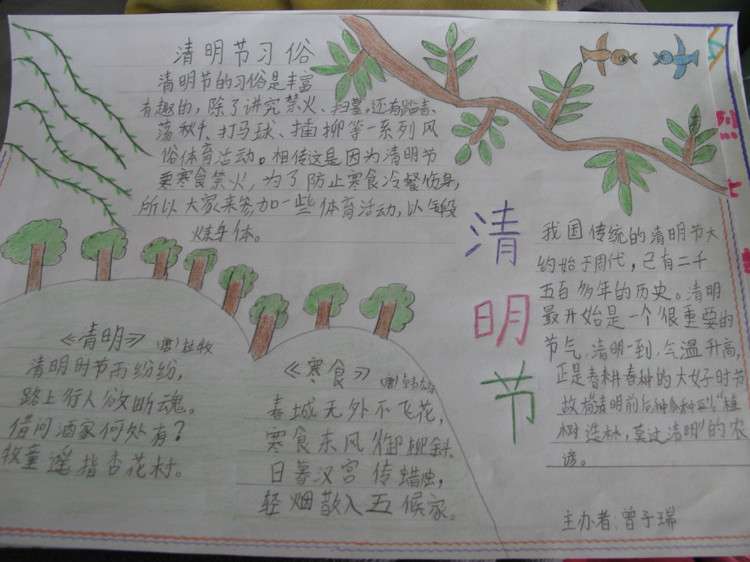 清明节习俗
清明节的习俗是丰富
有趣的，除了讲究禁火、扫墓，还有踏青、
荡秋千、打马球、插柳等一系列风
俗体育活动。相传这是因为清明节
要寒食禁火，为了防止寒食冷餐伤身，
所以大家来参加一些体育活动，以锻
炼身体。
清
明
节
我国传统的清明节大
约始于周代，已有二千
五百多年的历史。清明
最开始是一个很重要的
节气，清明一到，气温升高，
正是春耕春种的大好时节
故有清明前后种瓜种豆"植
树造林，莫过清明"的农
谚。
《清明》(唐)杜牧
清明时节雨纷纷，
路上行人欲断魂。
借问酒家何处有？
牧童遥指杏花村。
《寒食》
春城无外不飞花，
寒食东风御柳斜
日暮汉宫传蜡烛，
轻烟散入五候家。
主办者，曾子瑞